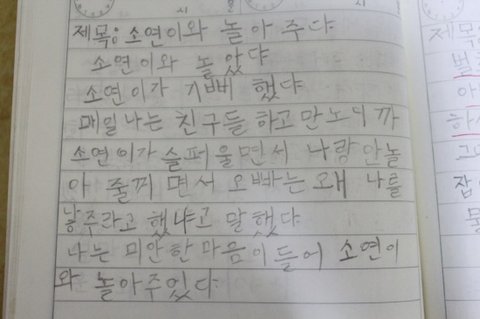 시
제목: 소연이와 놀아 주다
소연이와 놀았댜
소연이가 기뻐 했댜
매일 나는 친구들 하고 만 노니 까
소연이가 슬퍼 울면서 나랑 안놀
아 줄꺼 면서 오빠는 왜 나를
낳주라고 했냐고 말했댜
나는 미안한 마음이 들어 소연이
와 놀아주었다
제목